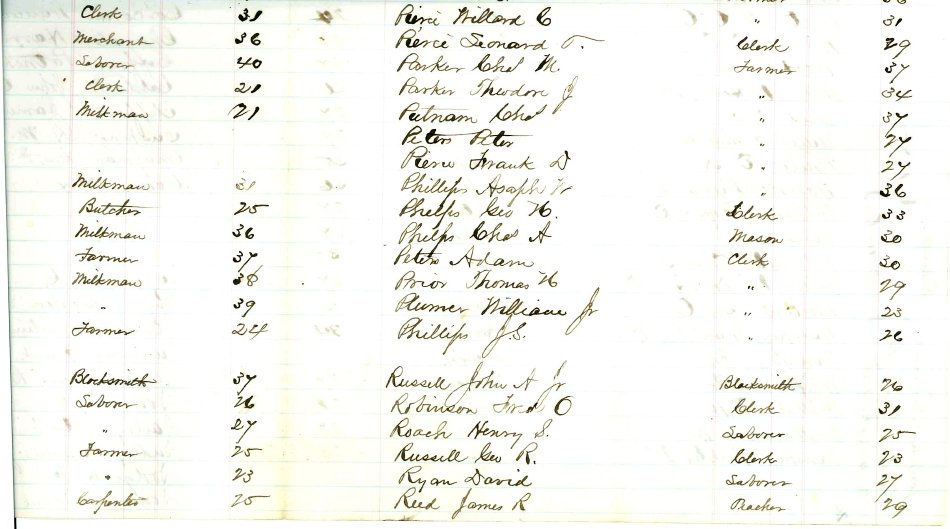 Clerk 31 Pierce Willard C " 31
Merchant 36 Pierce Leonard T. Clerk 29
Laborer 40 Parker Chas M. Farmer 37
Clerk 21 Parker Theodore J " 34
Milkman 21 Putnam Chas " 37
Peters Peter " 24
Pierce Frank D " 27
Milkman 31 Phillips Asaph W " 36
Butcher 25 Phelps Geo H. Clerk 33
Milkman 36 Phelps Chas A Mason 30
Farmer 37 Peters Adam Clerk 30
Milkman 38 Prior Thomas H " 29
" 39 Plumer William Jr " 23
Farmer 24 Phillips J.S. " 26
Blacksmith 37 Russell John A Jr Blacksmith 26
Laborer 26 Robinson Fred O Clerk 31
" 27 Roach Henry S. Laborer 25
Farmer 25 Russell Geo R. Clerk 23
" 23 Ryan David Laborer 27
Carpenter 25 Reed James R 29